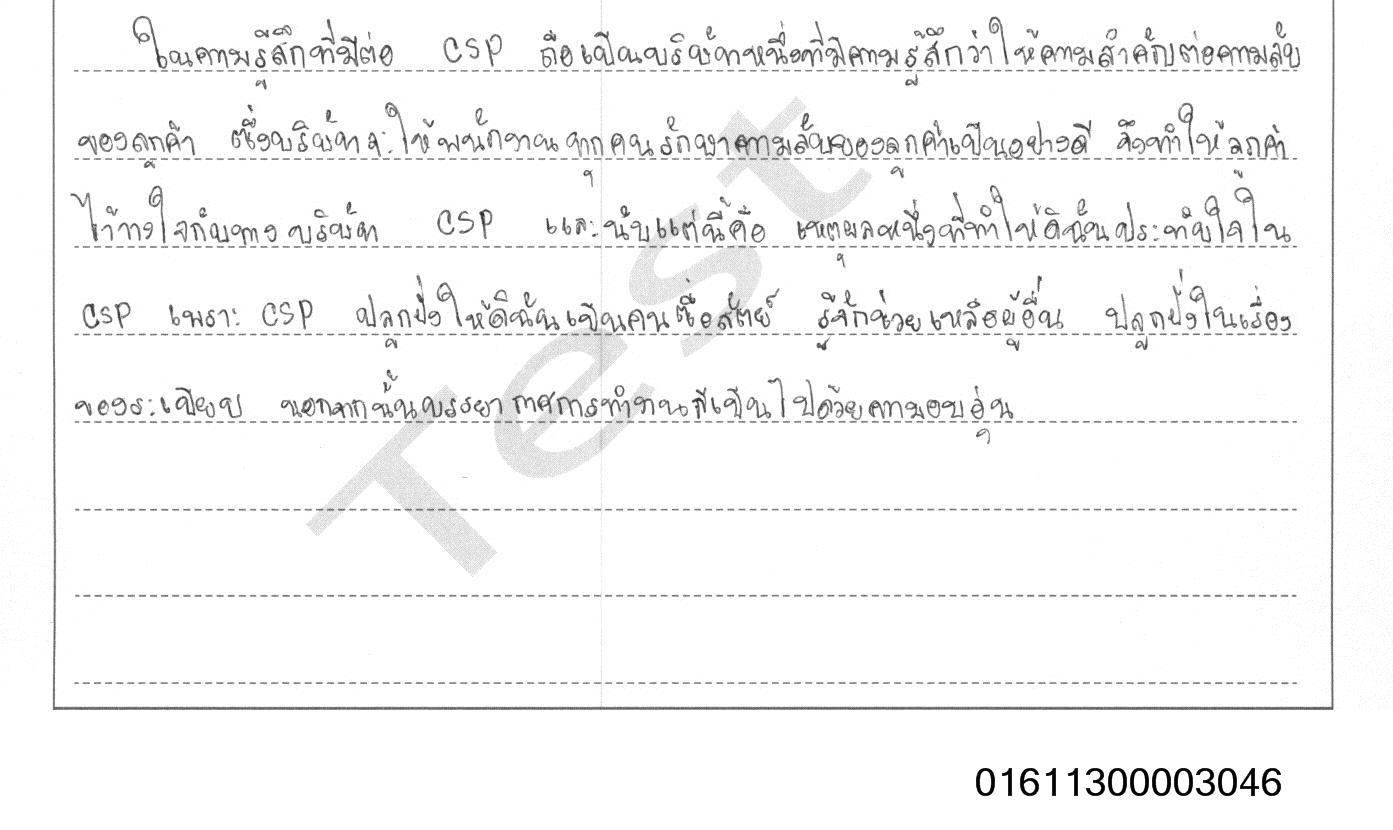 ในความรู้สึกที่มีต่อ CSP ถือเป็นบริษัทหนึ่งที่มีความรู้สึกว่าให้ความสำคัญต่อความลับ
ของลูกค้า ซึ่งบริษัทจะให้พนักงานทุกคนรักษาความลับของลูกค้าเป็นอย่างดี จึงทำให้ลูกค้า
ไว้วางใจกับทางบริษัท CSP และนับแต่นี้คือ เหตุผลหนึ่งที่ทำให้ดิฉันประทับใจใน
CSP เพราะ CSP ปลูกฝังให้ดิฉันเป็นคนซื่อสัตย์ รู้จักช่วยเหลือผู้อื่น ปลูกฝังในเรื่อง
ของระเบียบ นอกจากนั้นบรรยากาศการทำงานก็เป็นไปด้วยความอบอุ่น
Test
01611300003046